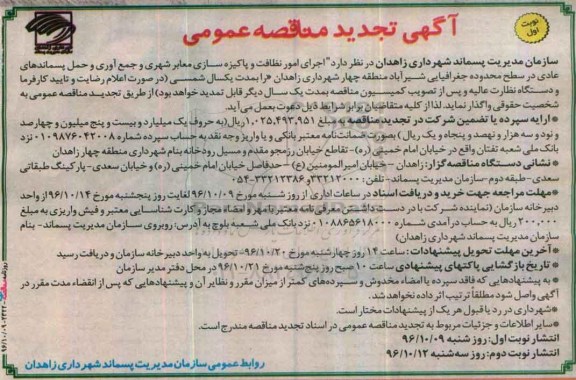 نوبت اول
آگهی تجدید مناقصه عمومی
سازمان مدیریت پسماند شهرداری زاهدان در نظر دارد "اجرای امور نظافت و پاکیزه سازی معابر شهری و جمع آوری و حمل پسماندهای
عادی در سطح محدوده جغرافیایی شیرآباد منطقه چهار شهرداری زاهدان "را بمدت یکسال شمسی (در صورت اعلام رضایت و تایید کارفرما
و دستگاه نظارت عالیه و پس از تصویب کمیسیون مناقصه بمدت یک سال دیگر قابل تمدید خواهد بود) از طریق تجدید مناقصه عمومی به
شخصیت حقوقی واگذار نماید. لذا از کلیه متقاضیان برابر شرایط ذیل دعوت بعمل می آید.
* ارایه سپرده یا تضمین شرکت در تجدید مناقصه به مبلغ ۱،۰۲۵،۴۹۳،۹۵۱ ریال(به حروف یک میلیارد و بیست و پنج میلیون و چهارصد
و نود و سه هزار و نهصد و پنجاه و یک ریال ) بصورت ضمانت نامه معتبر بانکی و یا واریز وجه نقد به حساب سپرده شماره ۰۱۰۹۸۷۶۰۴۲۰۰۸ نزد
بانک ملی شعبه تفتان واقع در خیابان امام خمینی (ره)- تقاطع خیابان رزمجو مقدم و مسیل رودخانه بنام شهرداری منطقه چهار زاهدان
* نشانی دستگاه مناقصه گزار: زاهدان – خیابان امیرالمومنین (ع) –حدفاصل خیابان امام خمینی (ره) و خیابان سعدی- پارکینگ طبقاتی
سعدی-طبقه دوم-سازمان مدیریت پسماند- تلفن: ۳۳۲۱۳۰۰۰ و ۳۳۲۱۳۳۸۶-۰۵۴
* مهلت مراجعه جهت خرید و دریافت اسناد در ساعات اداری از روز شنبه مورخ ۹۶/۱۰/۰۹ لغایت روز پنجشنبه مورخ ۹۶/۱۰/۱۴ از واحد
دبیرخانه سازمان (نماینده شرکت با در دست داشتن معرفی نامه معتبر با مهر و امضاء مجاز و کارت شناسایی معتبر و فیش واریزی به مبلغ
۳۰۰،۰۰۰ ریال به حساب درآمدی شماره ۰۱۰۸۸۶۵۶۱۸۰۰۰ نزد بانک ملی شعبه بلوچ به آدرس: روبروی سازمان مدیریت پسماند- بنام
سازمان مدیریت پسماند شهرداری زاهدان)
* آخرین مهلت تحویل پیشنهادات: ساعت ۱۴ روز چهارشنبه مورخ ۹۶/۱۰/۲۰- تحویل به واحد دبیرخانه سازمان و دریافت رسید
* تاریخ بازگشایی پاکتهای پیشنهادی ساعت ۱۰ صبح روز پنج شنبه مورخ ۹۶/۱۰/۲۱ در محل دفتر مدیر سازمان
* به پیشنهادهایی که فاقد سپرده یا امضاء مخدوش و سپرده های کمتر از میزان مقرر و نظایر آن و پیشنهادهایی که پس از انقضاء مدت مقرر در
آگهی واصل شود مطلقاً ترتیب اثر داده نخواهد شد.
*شهرداری در رد یا قبول هر یک از پیشنهادات مختار است.
* سایر اطلاعات و جزئیات مربوط به تجدید مناقصه عمومی در اسناد تجدید مناقصه مندرج است.
انتشار نوبت اول: روز شنبه ۹۶/۱۰/۰۹
انتشار نوبت دوم: روز سه شنبه ۹۶/۱۰/۱۲
روابط عمومی سازمان مدیریت پسماند شهرداری زاهدان